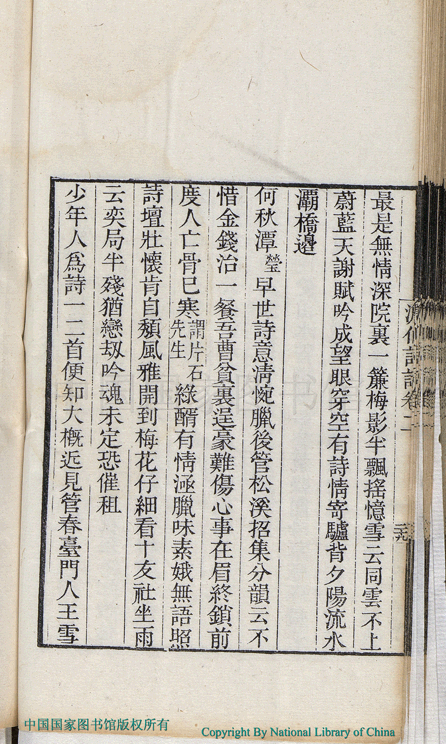 最是無情深院裏一簾梅影半飄搖憶雪云同雲不上
蔚藍天謝賦吟成望眼穿空有詩情寄驢背夕陽流水
灞橋邊
何秋潭瑩早世詩意淸惋臘後管松溪招集分韻云不
惜金錢治一餐吾曹貧裏逞豪難傷心事在眉終鎖前
度人亡骨已寒謂片石先生綠醑有情涵臘味素娥無語照
詩壇壯懷肯自頽風雅開到梅花仔細看十友社坐雨
云奕局半殘猶戀刼吟魂未定恐催租
少年人爲詩一二首便知大槪近見管春臺門人王雪
中国国家图书馆版权所有
Copyright By National Library of China